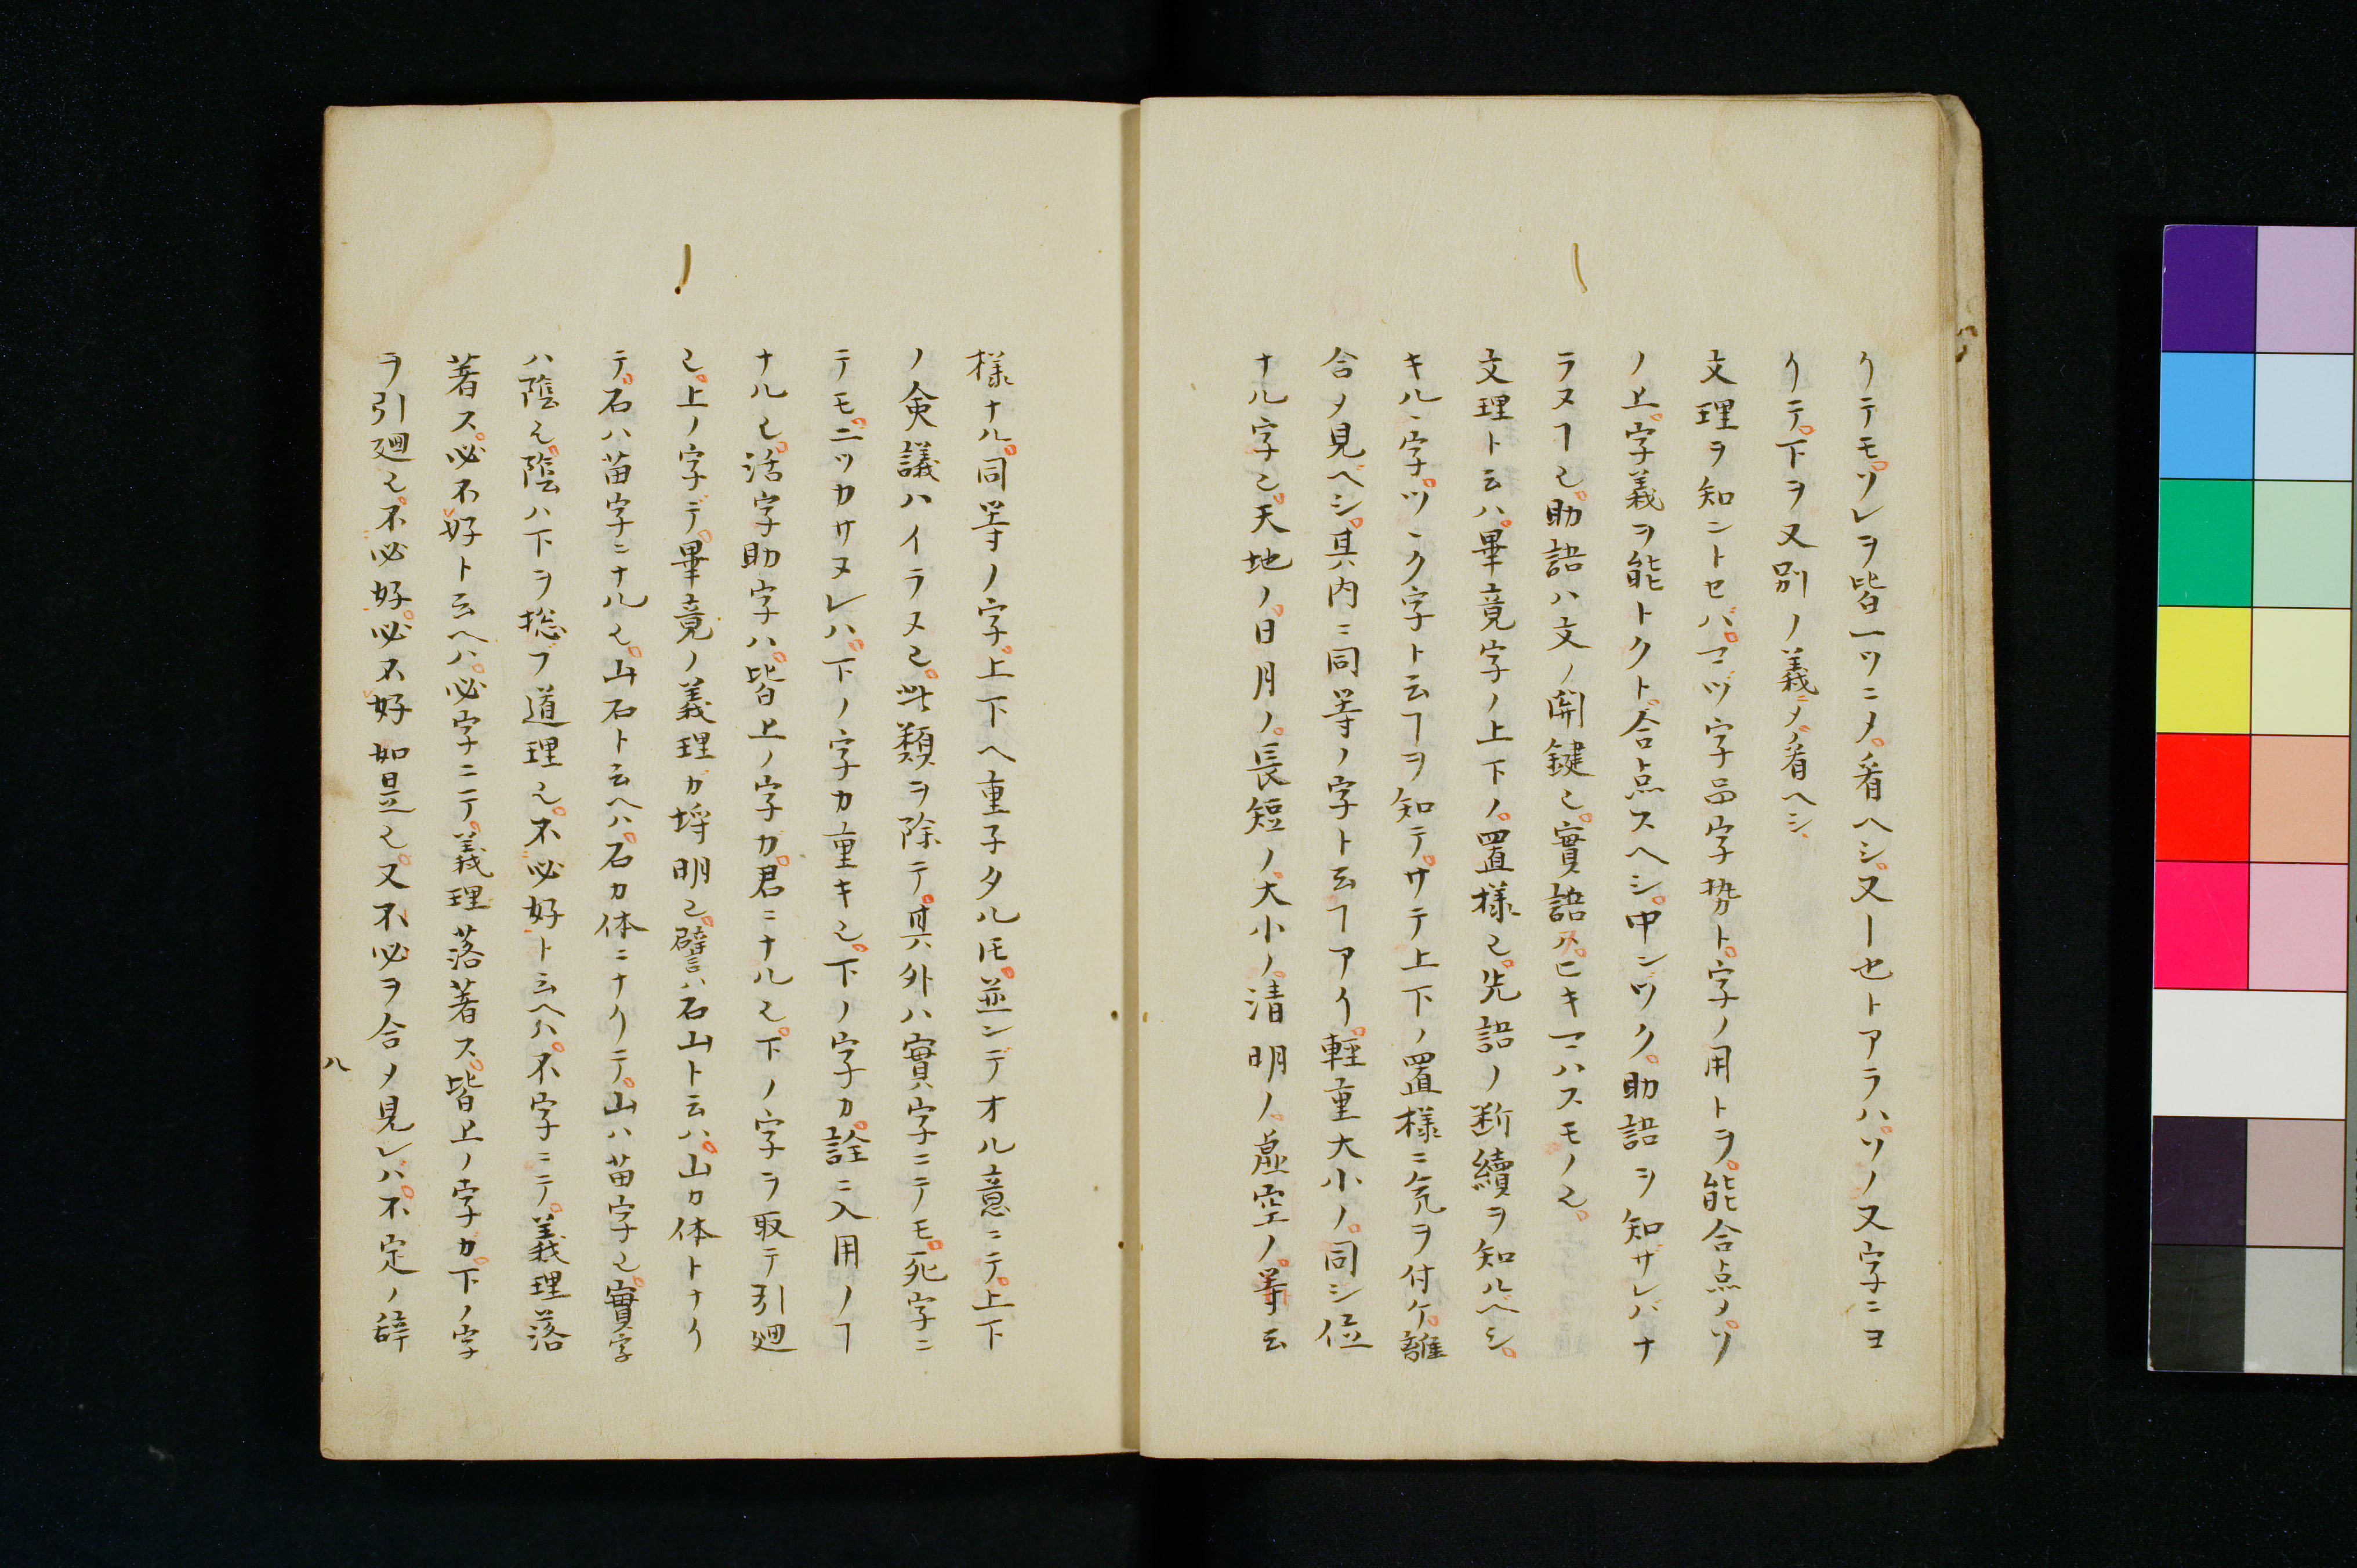 リテモ。ソレヲ皆一ツニ〆。看ヘシ。又ー也トアラハ。ソノ又字ニヨ
リテ。下ヲ又別ノ義ニ〆。看ヘシ。
文理ヲ知ントセバ。マヅ字品字勢ト。字ノ用トヲ。能合点〆。ソ
ノ上。字義ヲ能トクト。合点スヘシ。中ンヅク。助語ヲ知ザレバナ
ラヌヿ也。助語ハ文ノ関鍵也。實語ハ。ヒキマハスモノ也。
文理ト云ハ。畢竟字ノ上下ノ。置様也。先語ノ断續ヲ知ルベシ。
キルヽ字。ツヽク字ト云ヿヲ知テ。サテ上下ノ置様ニ気ヲ付ケ。離
合〆見ベシ。其内ニ同等ノ字ト云ヿアリ。軽重大小ノ。同シ位
ナル字也。天地ノ。日月ノ。長短ノ。大小ノ。清明ノ。虚空ノ。等云
様ナル。同等ノ字。上下ヘ重子タルㇳモ。並ンデオル意ニテ。上下
ノ僉議ハイラヌ也。此類ヲ除テ。其外ハ實字ニテモ。死字ニ
テモ。二ツカサヌレハ。下ノ字カ重キ也。下ノ字カ。詮ニ入用ノヿ
ナル也。活字助字ハ。皆上ノ字ガ。君ニナル也。下ノ字ヲ取テ引廻
也。上ノ字デ。畢竟ノ義理ガ埒明也。譬ハ石山ト云ハ。山カ体トナリ
テ。石ハ苗字ニナル也。山石ト云ヘハ。石カ体ニナリテ。山ハ苗字也。實字
ハ陰也。陰ハ下ヲ捴ブ道理也。不必好ト云ヘハ。不字ニテ。義理落
著ス。必不好ト云ヘハ。必字ニテ。義理落著ス。皆上ノ字ガ。下ノ字
ヲ引廻也。不必好。必不好如是也。又不必ヲ合〆見レバ。不定ノ辞
八